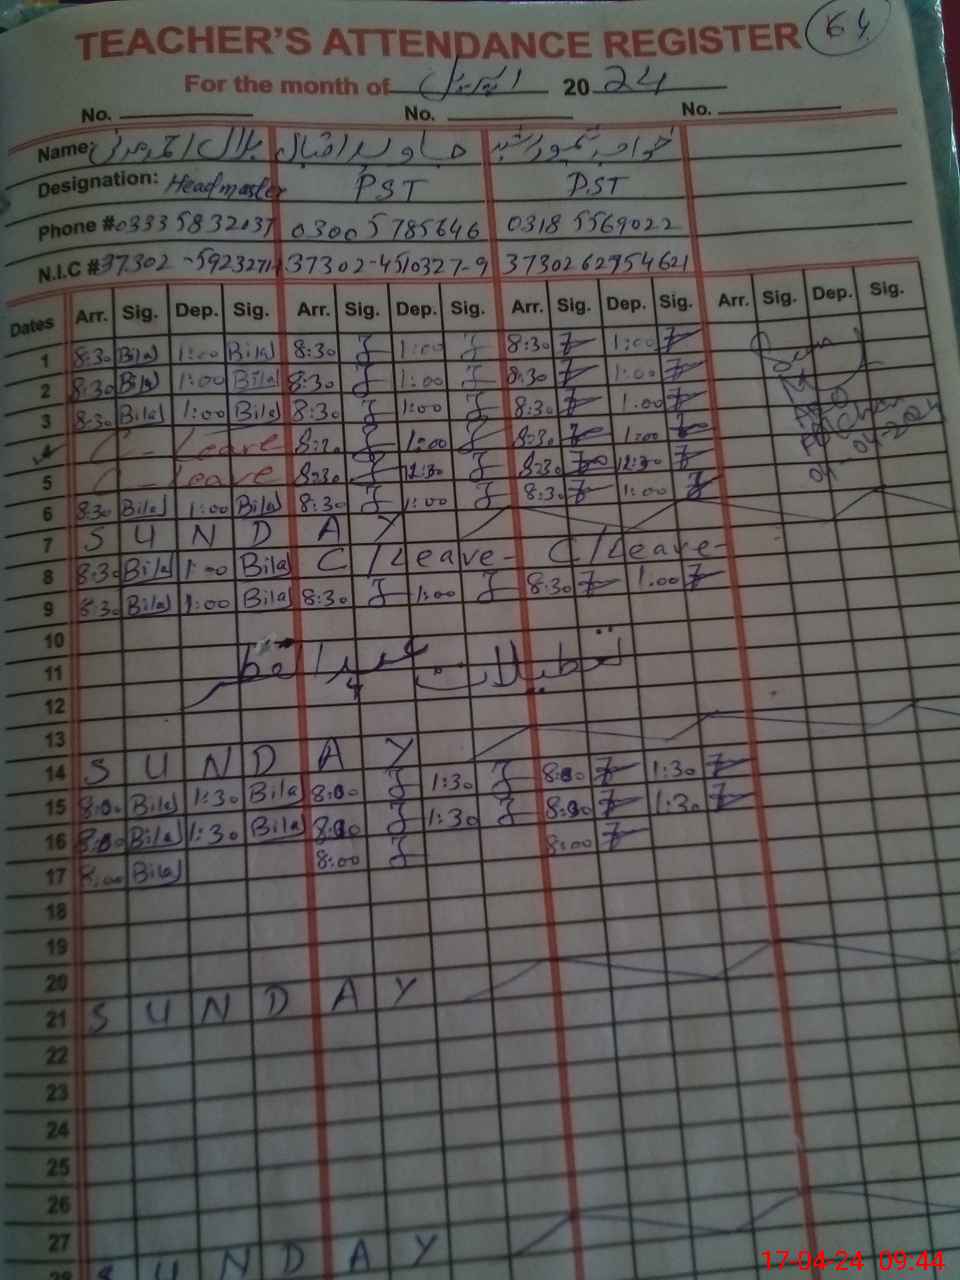 64
TEACHER'S ATTENDANCE REGISTER
For the month of اپریل 2024
No. No. No.
Name: بلال احمد جاوید اقبال
Designation: Headmaster PST PST
Phone # 0333 5832037 0300 5785646 0318 5569022
N.I.C # 37302-5923271 37302-4510327-9 3730262954621
Dates Arr. Sig. Dep. Sig. Arr. Sig. Dep. Sig. Arr. Sig. Dep. Sig. Arr. Sig. Dep. Sig.
1 8:30 Bilal 1:00 Bilal 8:30 1:00 8:30 1:00
2 8:30 Bilal 1:00 Bilal 8:30 1:00 8:30 1:00
3 8:30 Bilal 1:00 Bilal 8:30 1:00 8:30 1:00
4 C - Leave 8:30 1:00 8:30 1:00
5 C Leave 8:30 12:30 8:30 12:30
6 8:30 Bilal 1:00 Bilal 8:30 1:00 8:30 1:00
7 S U N D A Y
8 8:30 Bilal 1:00 Bilal C/Leave- C/Leave-
9 8:30 Bilal 1:00 Bilal 8:30 1:00 8:30 1:00
10
11 تعطیلات عید الفطر
12
13
14 S U N D A Y
15 8:00 Bilal 1:30 Bilal 8:00 1:30 8:00 1:30
16 8:00 Bilal 1:30 Bilal 8:00 1:30 8:00 1:30
17 8:00 Bilal 8:00 8:00
18
19
20
21 S U N D A Y
22
23
24
25
26
27
28 S U N D A Y
17-04-24 09:44